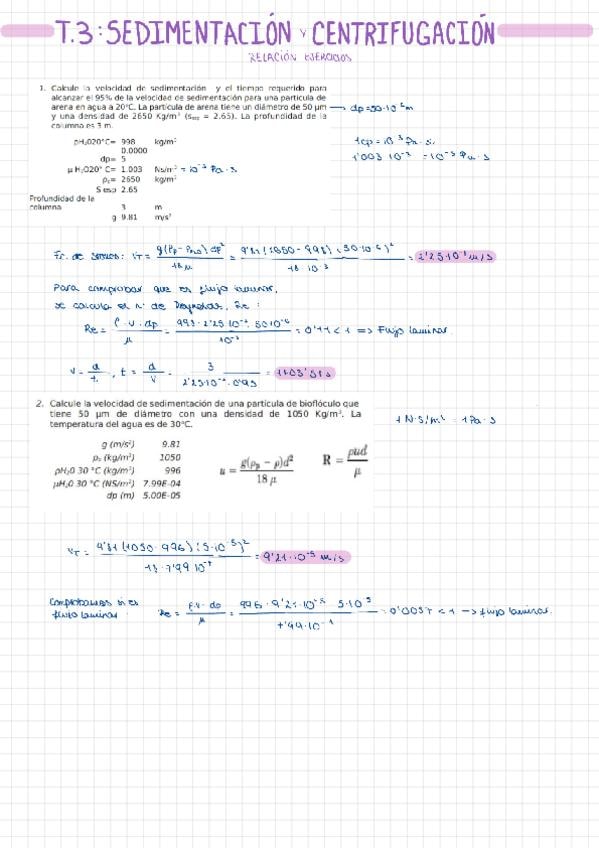 T.3: SEDIMENTACIÓN Y CENTRIFUGACIÓN
RELACIÓN EJERCICIOS
1. Calcule la velocidad de sedimentación y el tiempo requerido para
alcanzar el 95% de la velocidad de sedimentación para una partícula de
arena en agua a 20°C. La partícula de arena tiene un diámetro de 50 µm
y una densidad de 2650 Kg/m³ (s = 2.65). La profundidad de la
columna es 3 m.
dp = 50·10⁻⁶ m
pH₂020°C= 998 kg/m³
0.0000
dp= 5
µ H₂020° C= 1.003 Ns/m² = 10⁻³ Pa·s
1cp = 10⁻³ Pa·s.
1'003·10⁻³ = 10⁻³ Pa·s
ρₛ= 2650 kg/m³
S esp 2.65
Profundidad de la
columna 3 m
g 9.81 m/s²
Ec. de Stokes: VT = g(ρp - ρH₂O) dp² / 18µ = 9'81 (2650 - 998) (50·10⁻⁶)² / 18·10⁻³ = 2'25·10⁻³ m/s
Para comprobar que es flujo laminar,
se calcula el nº de Reynolds, Re:
Re = ρ·v·dp / µ = 998·2'25·10⁻³·50·10⁻⁶ / 10⁻³ = 0'11 < 1 => Flujo laminar.
v = d / t, t = d / v = 3 / 2'25·10⁻³·0'95 = 1403'51 s
2. Calcule la velocidad de sedimentación de una partícula de bioflóculo que
tiene 50 µm de diámetro con una densidad de 1050 Kg/m³. La
temperatura del agua es de 30°C.
1 N·S/m² = 1 Pa·s
g (m/s²) 9.81
ρₛ (kg/m³) 1050
pH₂0 30 °C (kg/m³) 996
µH₂0 30 °C (NS/m²) 7.99E-04
dp (m) 5.00E-05
u = g(ρp − ρ)d² / 18 µ
R = ρud / µ
VT = 9'81 (1050 - 996) (5·10⁻⁵)² / 18·7'99·10⁻⁴ = 9'21·10⁻⁵ m/s
Comprobamos si es
flujo laminar
Re = ρ·v·dp / µ = 996·9'21·10⁻⁵·5·10⁻⁵ / 7'99·10⁻⁴ = 0'0057 < 1 -> flujo laminar.